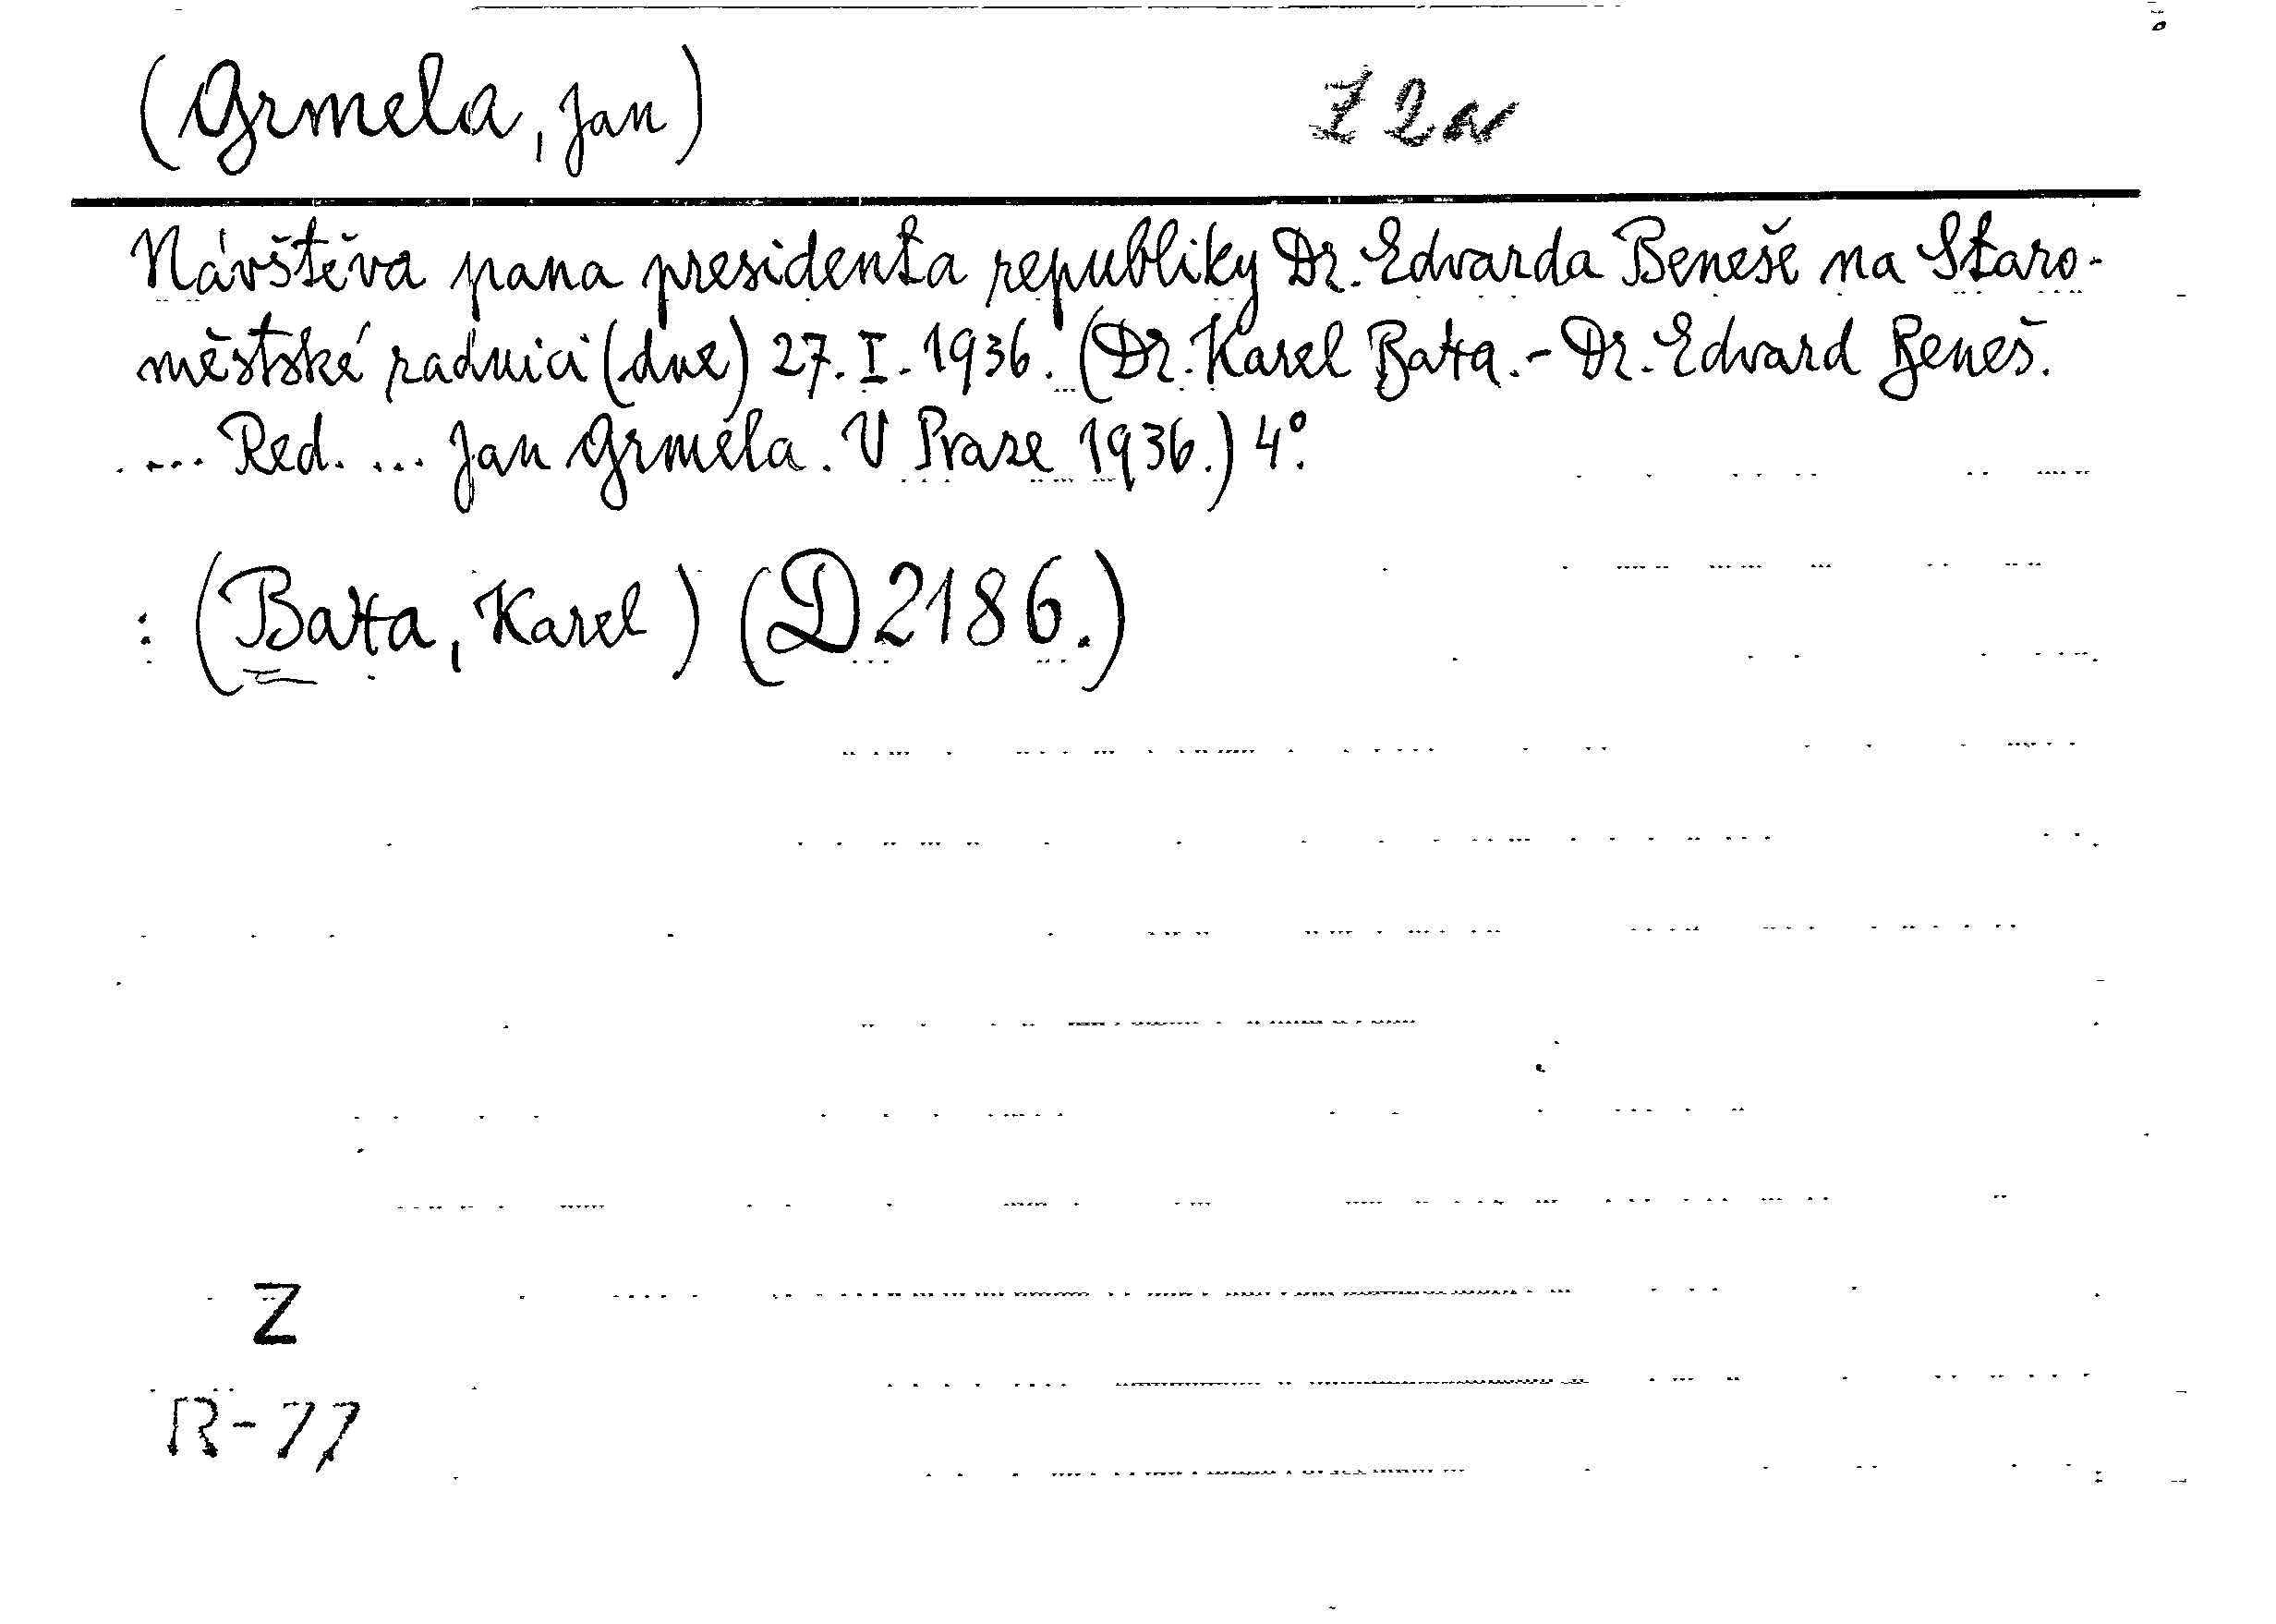 (Grmela, Jan) Z 2a
Návštěva pana presidenta republiky Dr. Edvarda Beneše na Staro-
městské radnici (dne) 27. I. 1936. (Dr. Karel Baxa. - Dr. Edvard Beneš.
.... Red. ... Jan Grmela. V Praze 1936.) 4°.
: (Baxa, Karel) (D 2186.)
Z
R-77